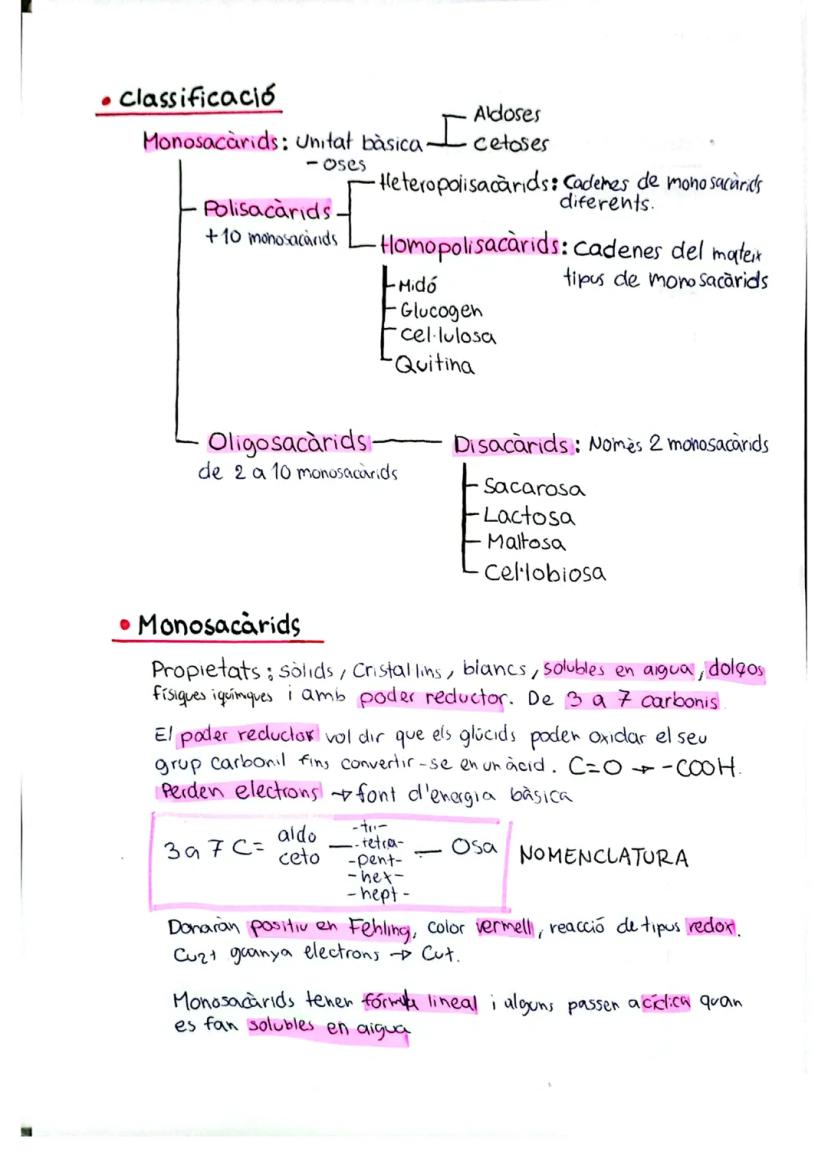 • Classificació
Aldoses
Monosacàrids: Unitat bàsica
cetoses
- oses
Heteropolisacàrids: Cadenes de monosacàrids
diferents.
Polisacàrids
+10 monosacàrids
Homopolisacàrids: cadenes del mateix
tipus de monosacàrids
Midó
Glucogen
Cel·lulosa
Quitina
Oligosacàrids
de 2 a 10 monosacàrids
Disacàrids: Nomès 2 monosacàrids
Sacarosa
Lactosa
Maltosa
Cel·lobiosa
• Monosacàrids
Propietats: sòlids, Cristallins, blancs, solubles en aigua, dolços
físiques i químiques i amb poder reductor. De 3 a 7 carbonis
El poder reductor vol dir que els glúcids poden oxidar el seu
grup carbonil fins convertir-se en un àcid. C=O → -COOH.
Perden electrons → font d'energia bàsica
3 a 7 C= aldo
ceto
-tri-
-tetra-
-pent-
-hex-
-hept-
— Osa
NOMENCLATURA
Donaràn positiu en Fehling, color vermell, reacció de tipus redox.
Cu2+ guanya electrons → Cu+.
Monosacàrids tenen fórmula lineal i alguns passen a cíclica quan
es fan solubles en aigua